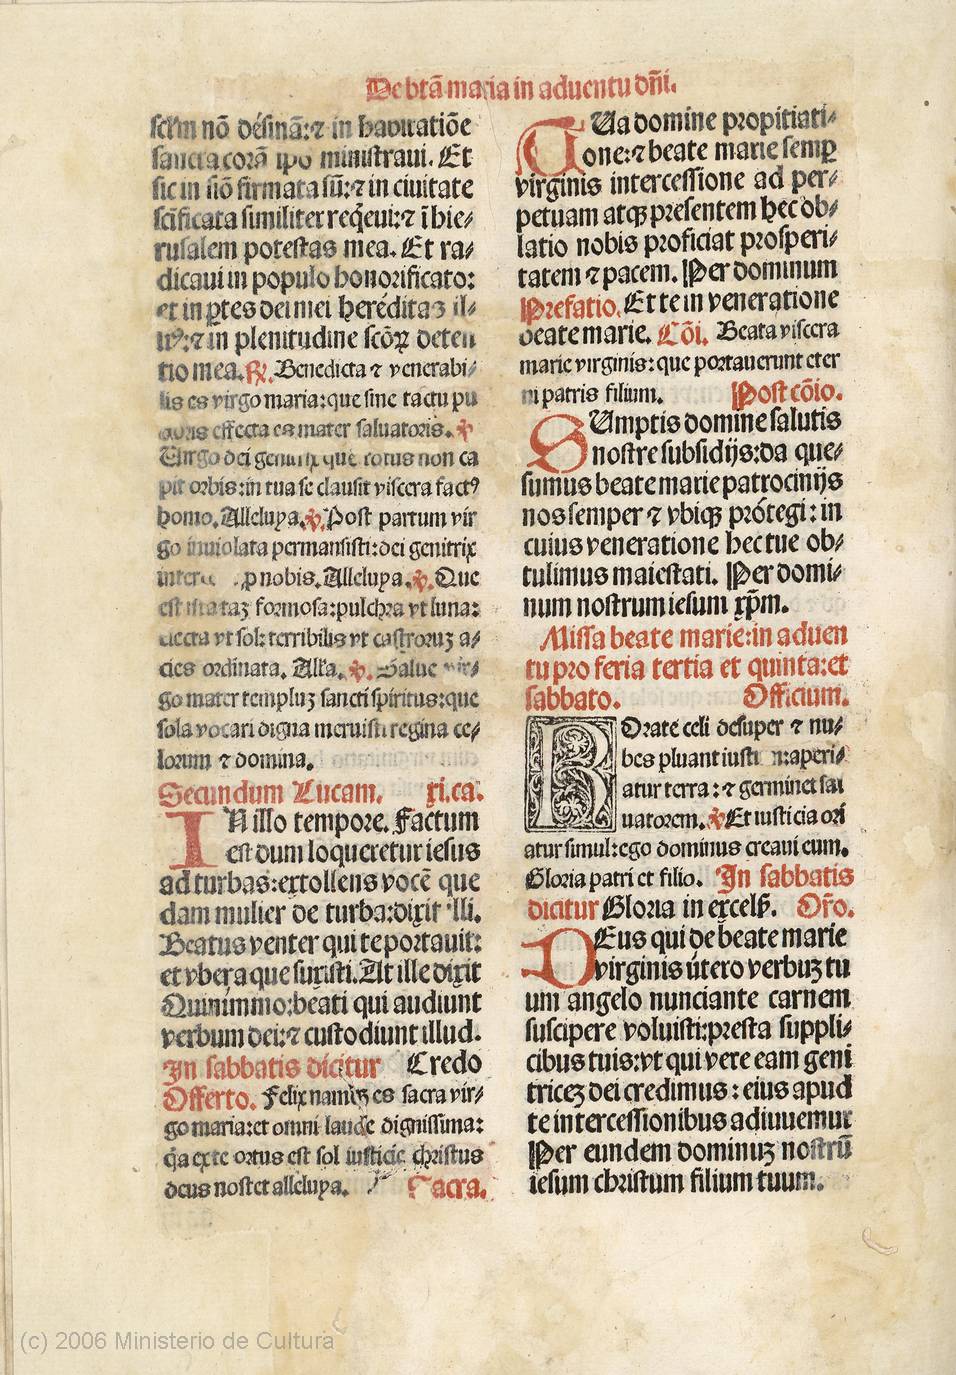 De btā maria in aduentu dñi.
sclm nō désinā: ⁊ in habitatiōe
sancta corā ipo ministraui. Et
sic in siō firmata sū: ⁊ in ciuitate
scificata similiter reqeui: ⁊ ī hie⸗
rusalem potestas mea. Et ra⸗
dicaui in populo honorificato:
et in ꝑtes dei mei heréditaꝫ il⸗
⁊ in plenitudine scōꝝ deten
tio mea. ℟. Benedicta ⁊ venerabi⸗
lis es virgo maria: que sine tactu pu
effecta es mater saluatoris. ℣.
Uirgo dei genitrix que totus non ca
pit orbis: in tua se clausit viscera factꝰ
homo. Alleluya. ℣. Post partum vir
go inuiolata permansisti: dei genitrix
ꝓ nobis. Alleluya. ℣. Que
est ista taꝫ formosa: pulchra vt luna:
electa vt sol: terribilis vt castroruꝫ a⸗
cies ordinata. Alľa. ℣. Salue vir⸗
go mater templuꝫ sancti spiritus: que
sola vocari digna meruisti regina ce⸗
lorum ⁊ domina.
Secundum Lucam. xi. ca.
IN illo tempore. Factum
est dum loqueretur iesus
ad turbas: extollens vocē que
dam mulier de turba: dixit illi.
Beatus venter qui te portauit:
et vbera que suxisti. At ille dixit
Quinimmo: beati qui audiunt
verbum dei: ⁊ custodiunt illud.
In sabbatis dicitur Credo
Offerto. Felix namqꝫ es sacra vir⸗
go maria: et omni laude dignissima:
q̄a ex te ortus est sol iusticie christus
deus noster alleluya. Sacra.
TUa domine propitiati⸗
one: ⁊ beate marie semꝑ
virginis intercessione ad per⸗
petuam atqꝫ presentem hec ob⸗
latio nobis proficiat prosperi⸗
tatem ⁊ pacem. Per dominum
Prefatio. Et te in veneratione
beate marie. Cōi. Beata viscera
marie virginis: que portauerunt eter
ni patris filium. Post cōio.
SUmptis domine salutis
nostre subsidijs: da que⸗
sumus beate marie patrocinijs
nos semper ⁊ vbiqꝫ prótegi: in
cuius veneratione hec tue ob⸗
tulimus maiestati. Per domi⸗
num nostrum iesum xp̄m.
Missa beate marie: in aduen
tu pro feria tertia et quinta: et
sabbato. Officium.
ROrate celi desuper ⁊ nu⸗
bes pluant iustū: aperi⸗
atur terra: ⁊ germinet sal
uatorem. ℣. Et iusticia ori
atur simul: ego dominus creaui eum.
Gloria patri et filio. In sabbatis
dicitur Gloria in excelſ. Oro.
DEus qui de beate marie
virginis útero verbuꝫ tu
um angelo nunciante carnem
suscipere voluisti: presta suppli⸗
cibus tuis: vt qui vere eam geni
triceꝫ dei credimus: eius apud
te intercessionibus adiuuemur
Per eundem dominuꝫ nostrū
iesum christum filium tuum.
(c) 2006 Ministerio de Cultura